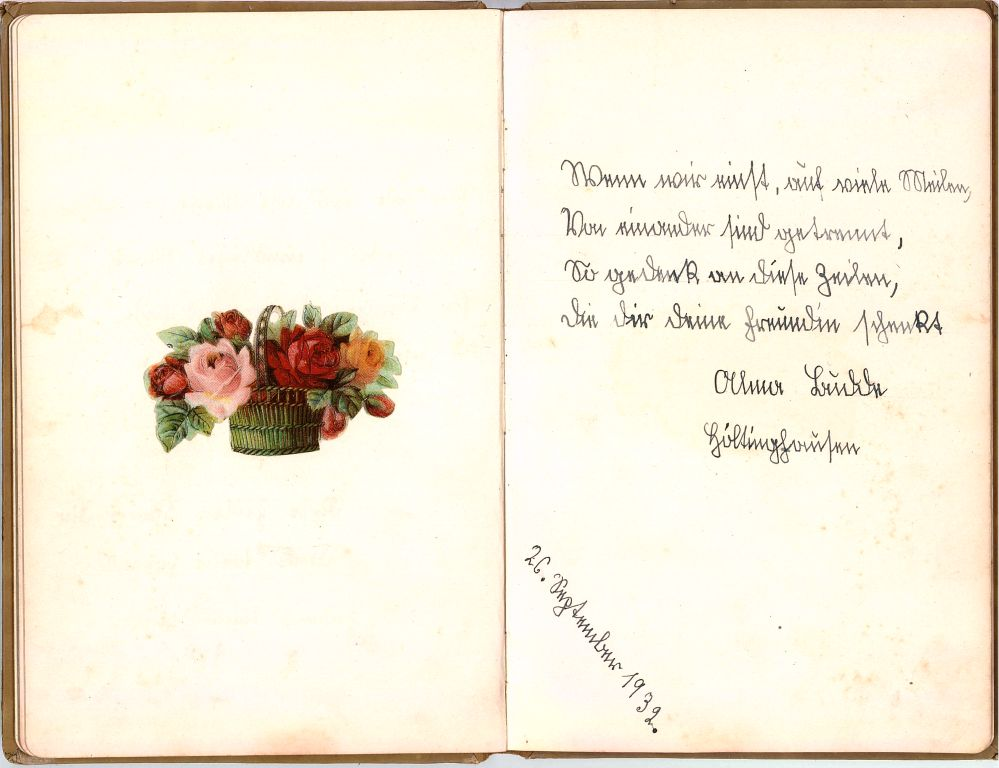 Wenn wir einst, auf viele Meilen,
Von einander sind getrennt,
So gedenk an diese Zeilen,
die dir deine Freundin schenkt
Alma Budde
Höltinghausen
26. September 1932.